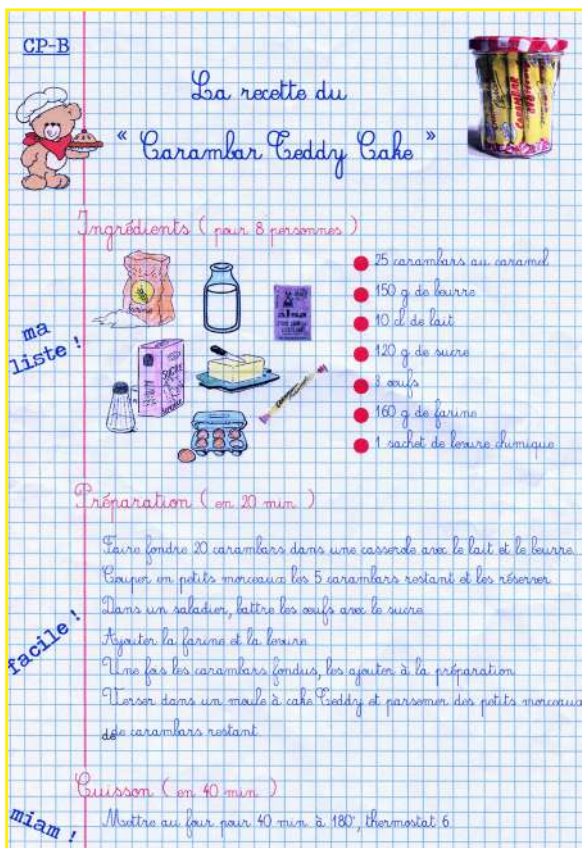 CP-B
La recette du
« Carambar Teddy Cake »
Ingrédients ( pour 8 personnes )
ma
liste !
farine
alsa
SUCRE
CARAMBAR
25 carambars au caramel
150 g de beurre
10 cl de lait
120 g de sucre
3 œufs
160 g de farine
1 sachet de levure chimique
Préparation ( en 20 min )
Faire fondre 20 carambars dans une casserole avec le lait et le beurre.
Couper en petits morceaux les 5 carambars restant et les réserver
Dans un saladier, battre les œufs avec le sucre
facile !
Ajouter la farine et la levure
Une fois les carambars fondus, les ajouter à la préparation
Verser dans un moule à cake Teddy et parsemer des petits morceaux
de carambars restant.
Cuisson ( en 40 min )
miam !
Mettre au four pour 40 min à 180°, thermostat 6